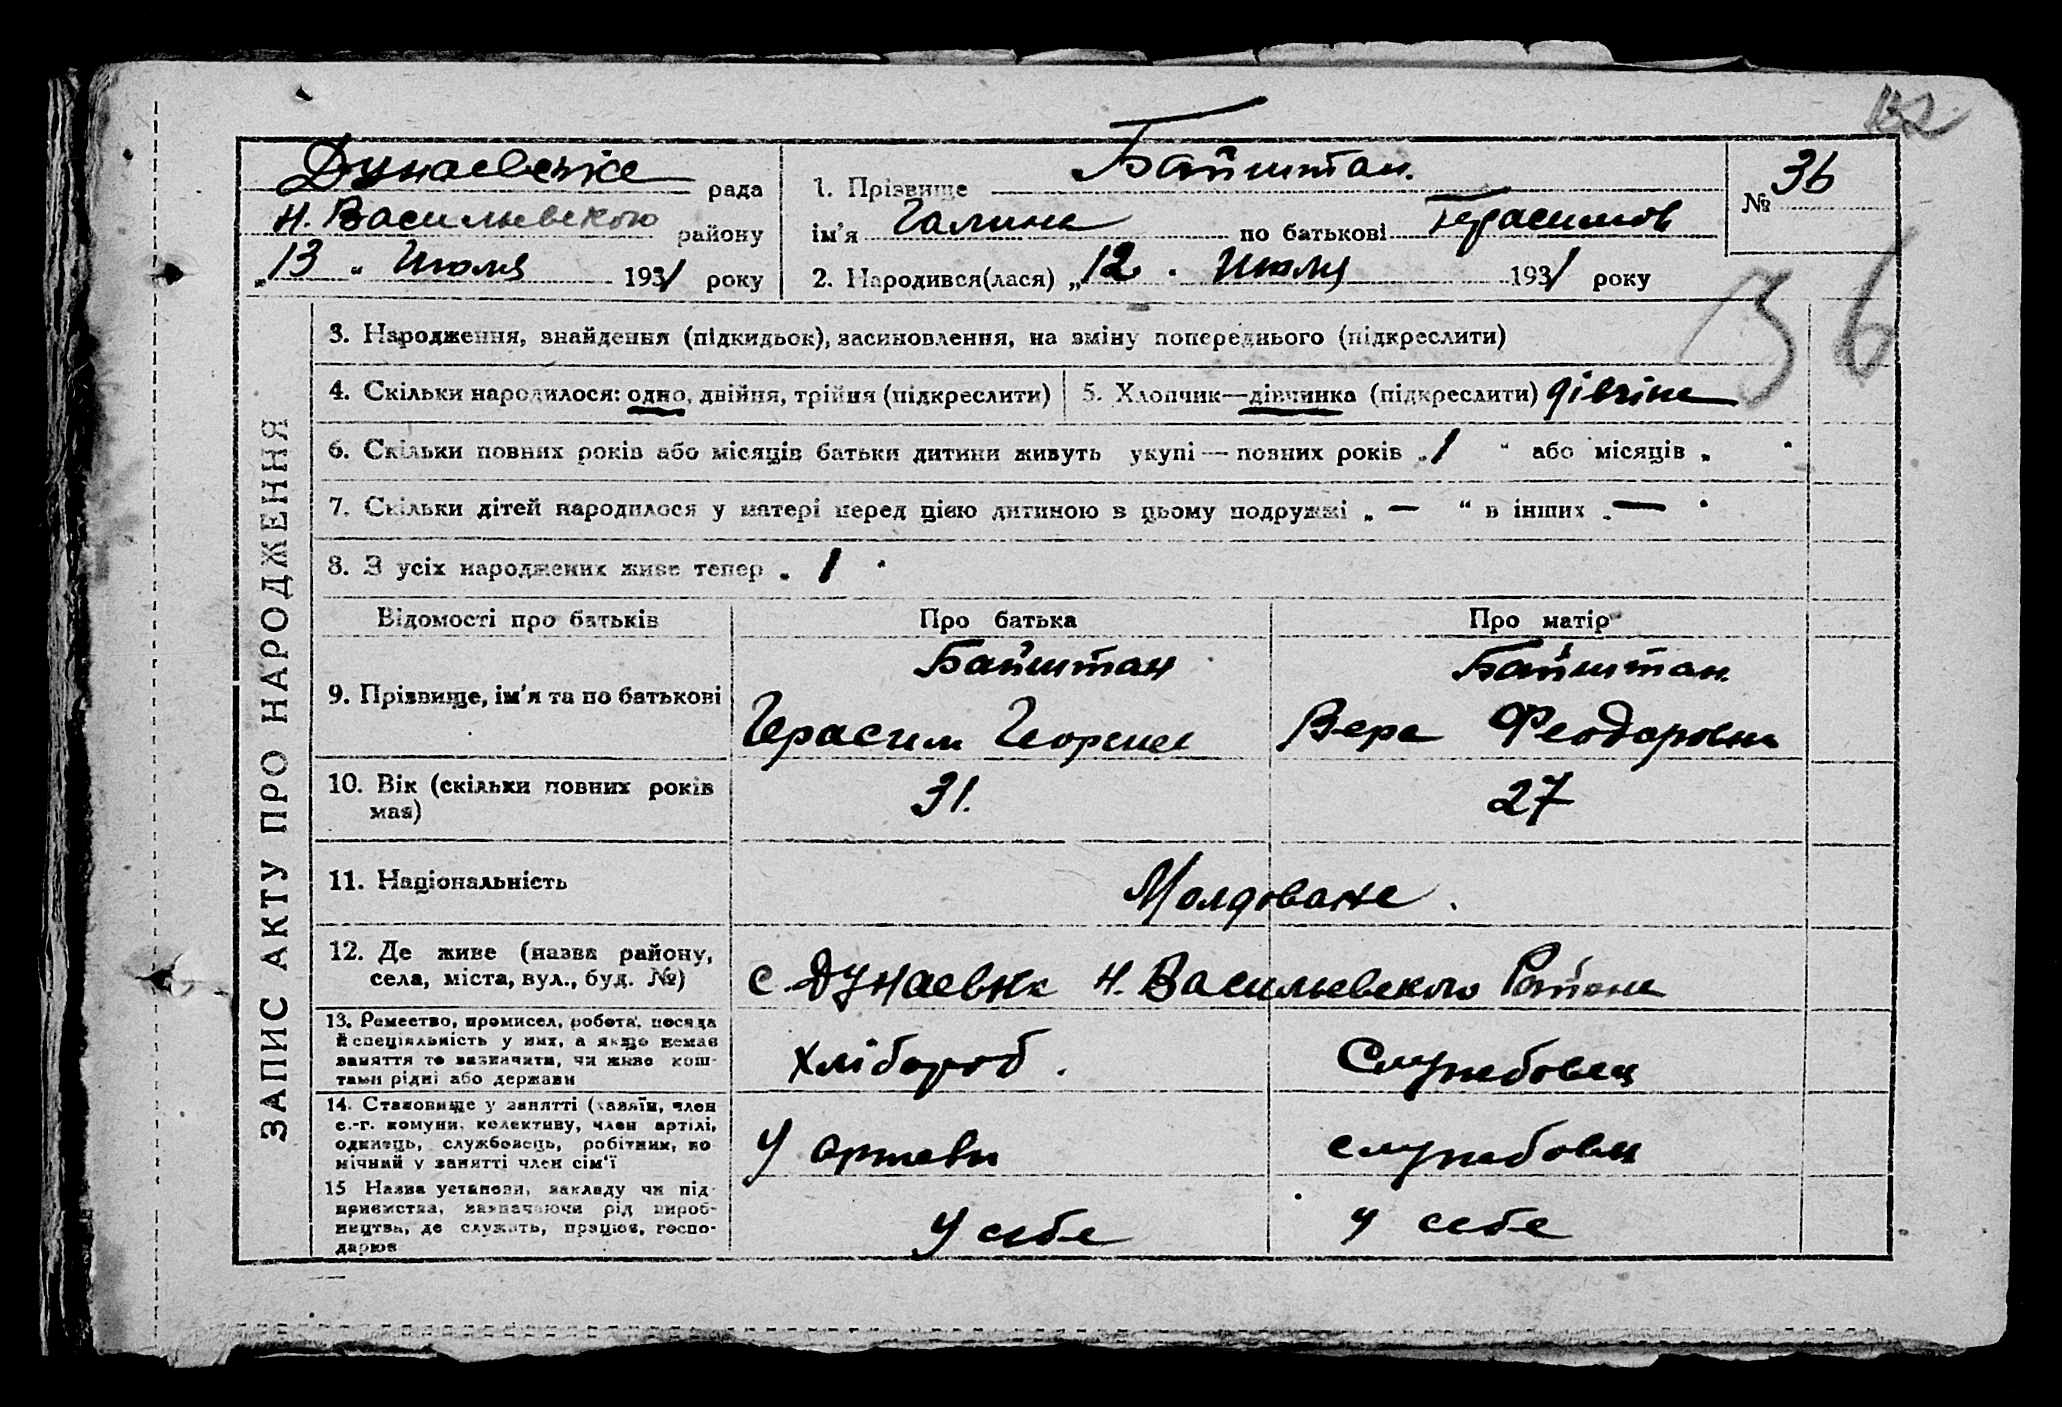 152
Дунаевська рада
Н. Васильевского району
„13" Июля 1931 року
1. Прізвище Байштан.
ім'я Галина по батькові Герасимов
2. Народився(лася) „12" Июля 1931 року
№ 36
36
ЗАПИС АКТУ ПРО НАРОДЖЕННЯ
3. Народження, знайдення (підкидьок), засиновлення, на зміну попереднього (підкреслити)
4. Скільки народилося: одно, двійня, трійня (підкреслити)
5. Хлопчик—дівчинка (підкреслити) дівчіна
6. Скільки повних років або місяців батьки дитини живуть укупі — повних років „1" або місяців „ "
7. Скільки дітей народилося у матері перед цією дитиною в цьому подружжі „—" в інших „—"
8. З усіх народжених живе тепер „1"
Відомості про батьків Про батька Про матір
9. Прізвище, ім'я та по батькові
Байштан
Герасим Георгиев
Байштан
Вера Феодоровна
10. Вік (скільки повних років
має)
31. 27
11. Національність Молдоване.
12. Де живе (назва району,
села, міста, вул., буд. №)
с. Дунаевка Н. Васильевского Района
13. Ремество, промисел, робота, посада
й спеціяльність у них, а якщо немає
заняття то зазначити, чи живе кош-
тами рідні або держави
хлібороб. Службовец
14. Становище у занятті (хазяїн, член
с.-г. комуни, колективу, член артілі,
одинець, службовець, робітник, по
мічний у занятті член сім'ї
у артели службовец
15 Назва установи, закладу чи під-
приємства, зазначаючи рід вироб-
ництва, де служить, працює, госпо-
дарює
у себе у себе